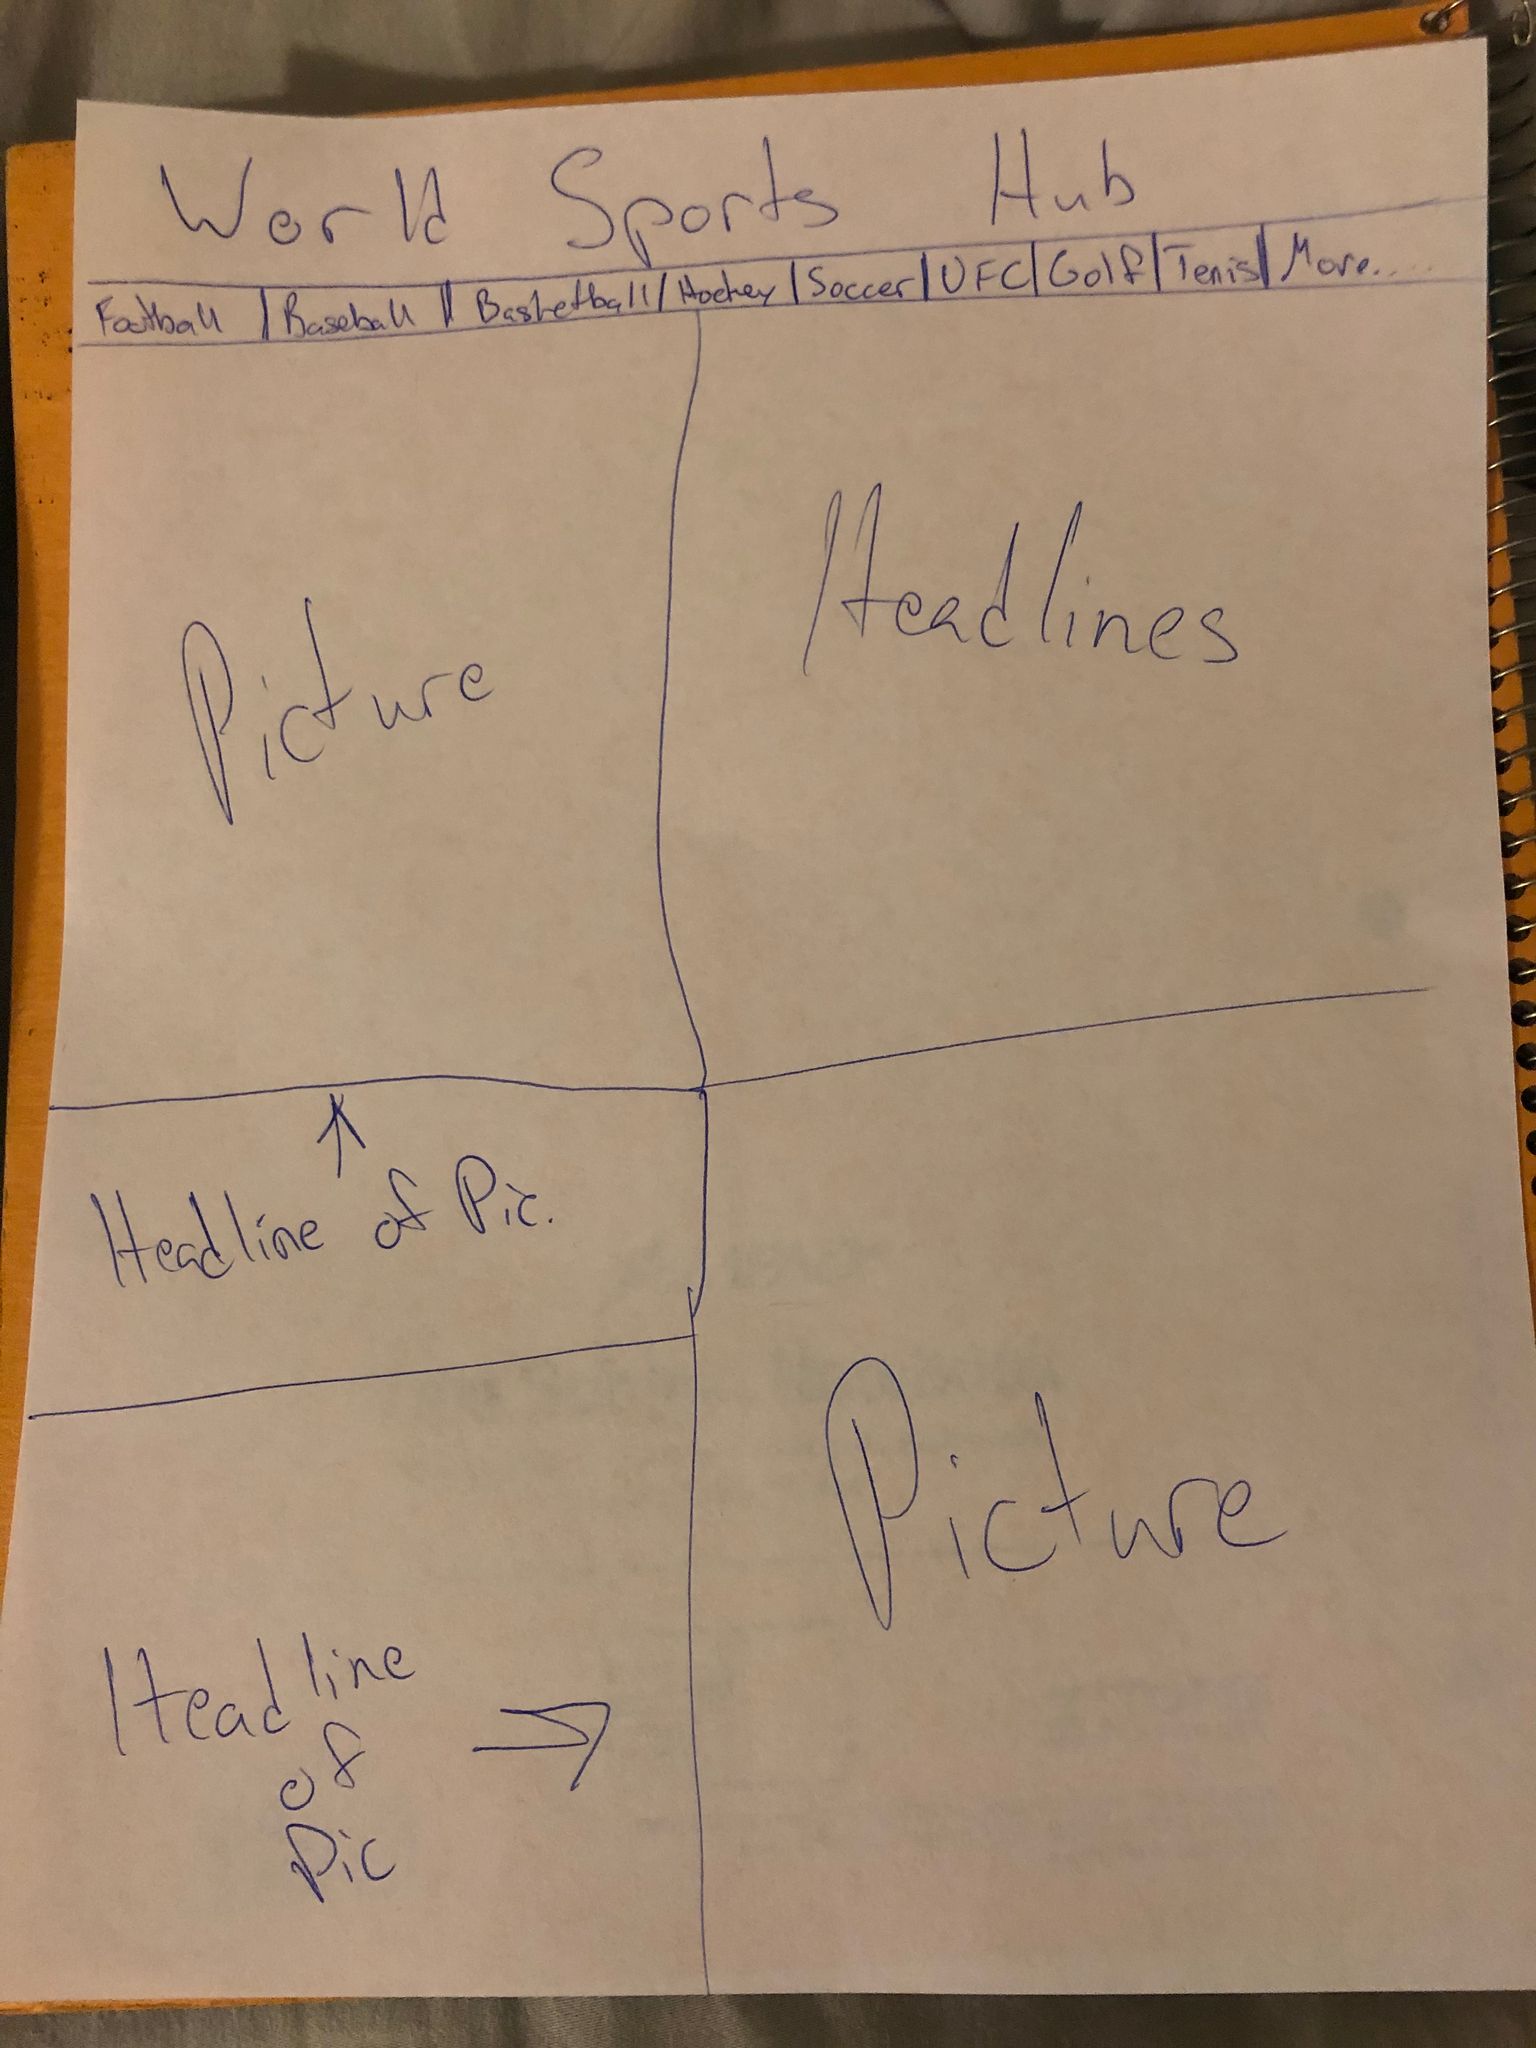 World Sports Hub
Football | Baseball | Basketball | Hockey | Soccer | UFC | Golf | Tenis | More.....
Picture
Headlines
Headline of Pic.
Picture
Headline
of
Pic